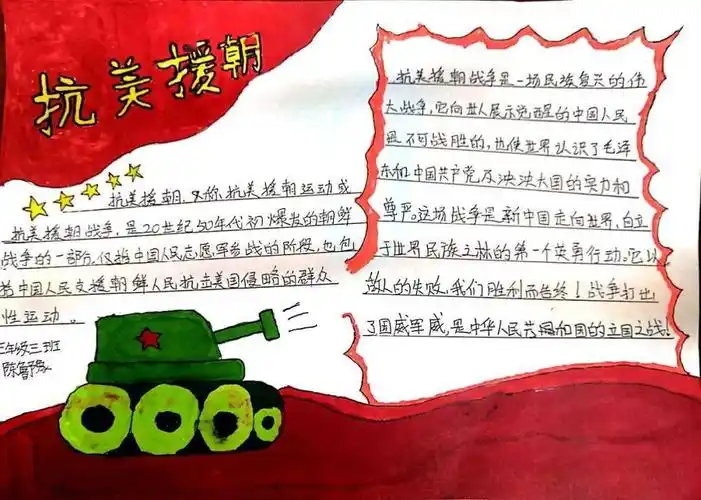 抗美援朝
抗美援朝,又称抗美援朝运动或
抗美援朝战争,是20世纪50年代初爆发的朝鲜
战争的一部分,仅指中国人民志愿军参战的阶段,也包
括中国人民支援朝鲜人民抗击美国侵略的群众
性运动。
三年级三班
陈鲁豫
抗美援朝战争是一场民族复兴的伟
大战争,它向世人展示觉醒的中国人民
是不可战胜的,也使世界认识了毛泽
东和中国共产党及泱泱大国的实力和
尊严。这场战争是新中国走向世界,自立
于世界民族之林的第一个英勇行动。它以
敌人的失败,我们胜利而告终!战争打出
了国威军威,是中华人民共和国的立国之战!